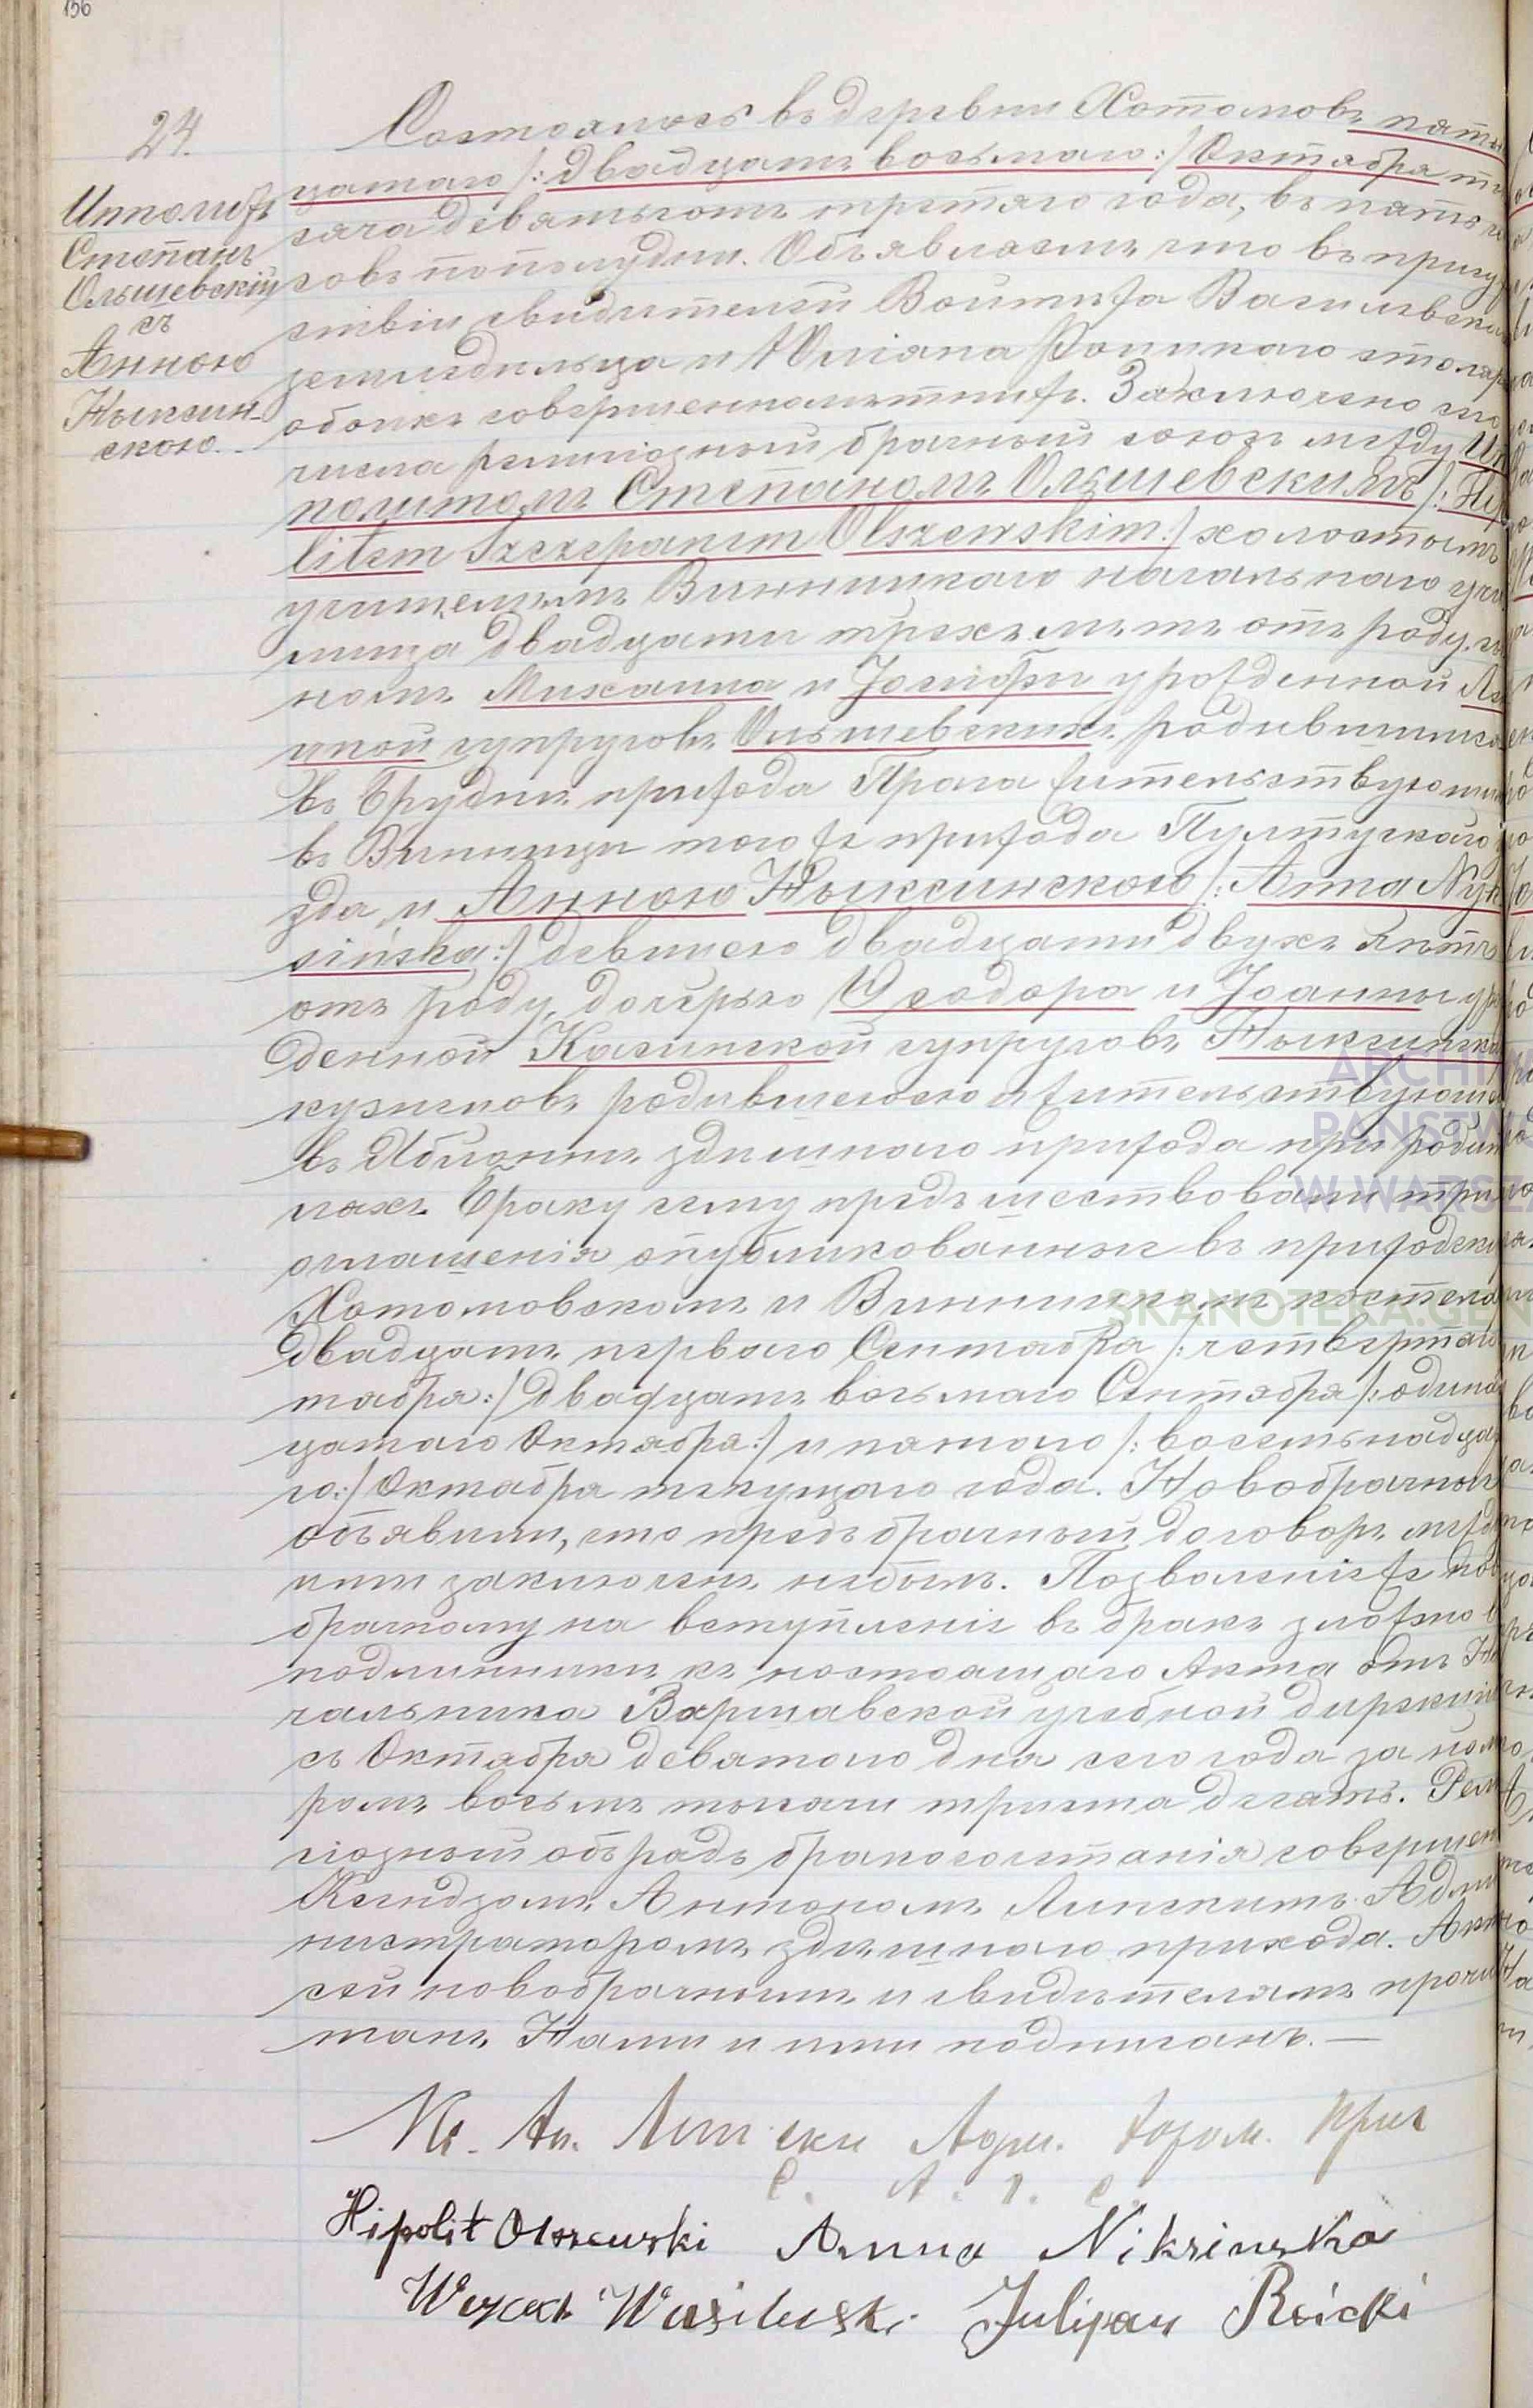 156
24.
Ипполитъ
Степанъ
Ольшевскій
съ
Анною
Ныксин-
скою.
Состоялось въ деревни Хотомовъ пятн
цатаго /:двадцать восьмаго:/ Октября ты
сяча девятьсотъ третяго года, въ пять ча
совъ пополудни. Объявляемъ что въ присут
ствіи свидѣтелей Войтѣха Василевска
земледѣльца и Юліяна Роицкаго столяр
обоихъ совершеннолѣтнихъ. Заключено сего
числа религіозный брачный союзъ между Ип
политомъ Степаномъ Ольшевскимъ /:Hip
litem Szczepanem Olszewskim:/ холостымъ
учителемъ Винницкаго начальнаго учи
лища двадцати трехъ лѣтъ отъ роду, сы
номъ Михаила и Іосифы урожденной
цкой супруговъ Ольшевскихъ, родившимся
въ Брудни прихода Прага жительствующи
въ Винницѣ тогоже прихода Пултускаго
зда, и Анною Ныксинскою /:Anna Nyk
sińska:/ девицею двадцати двухъ лѣтъ
отъ роду, дочерью Ѳеодора и Іоанны ур
денной Касинской супруговъ Ныксинск
кузнецовъ родившеюся и жительствующ
въ здѣшнаго прихода при родит
ляхъ. Браку сему предшествовали три
оглашенія опубликованные въ приходски
Хотомовскомъ и Винницкомъ костела
двадцать перваго Сентября /:четвертаго
тября:/ двадцать восьмаго Сентября /:одина
цатаго Октября:/ и пятаго /:восемьнадца
го:/ Октября текущаго года. Новобрачные
объявили, что предъбрачный договоръ межд
ними заключенъ небылъ. Позволеніе же ново
брачному на вступленіе въ бракъ зложно в
подлинникъ къ ностоящаго Акта отъ На
чальника Варшавской учебной дирекціи
съ Октября девятого дня сего года за номе
ромъ восьмъ тысячи триста десять. Рели
гіозный обрядъ бракосочетанія совершенъ
Ксендзомъ Антономъ Липскимъ Адми
нистраторомъ здѣшнаго прихода. Актъ
сей новобрачнымъ и свидѣтелямъ прочи
танъ Нами и ими подписанъ. —
Кс. Ан. Липски Адми. Хотом. прих
С. А. Г. С.
Hipolit Olszewski Anna Niksinska
Wojciech Wasilewski Julijan Roicki
ARCHIW
PAŃSTWO
W WARSZA
SKANOTEKA.GEN